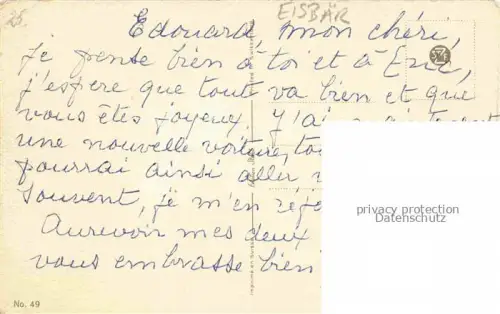 25.
EISBÄR
Edouard, mon chéri,
je pense bien à toi et à Eric,
j'espere que tout va bien et que
vous êtes joyeux. J'ai
une nouvelle voiture,
pourrai ainsi aller
souvent, je m'en
Aurevoir mes deux
vous embrasse bien
privacy protection
Datenschutz
No. 49